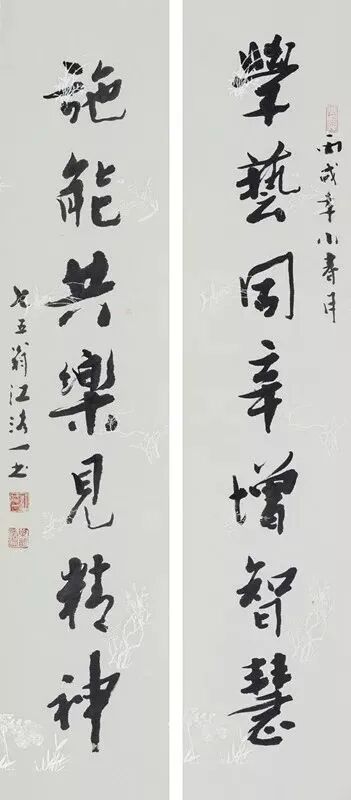 丙戌年小春月
學藝同辛增智慧
施能共樂見精神
七五翁江洛一书